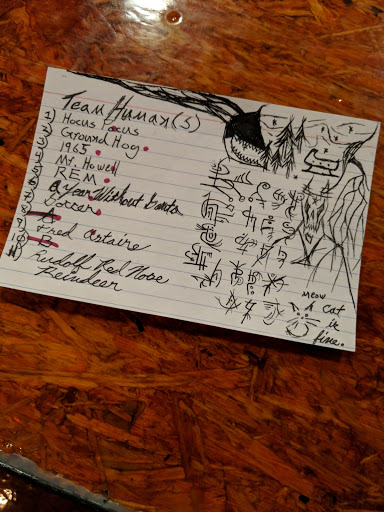 Team Human(s)
1) Hocus Pocus
2) Ground Hog
3) 1965
4) Mr. Howell
5) REM
6) A Year Without Santa
7)
8) A
9) Fred Astaire
10) B
11) Rudolf Red Nose
Reindeer
meow
Cat
is
fine.